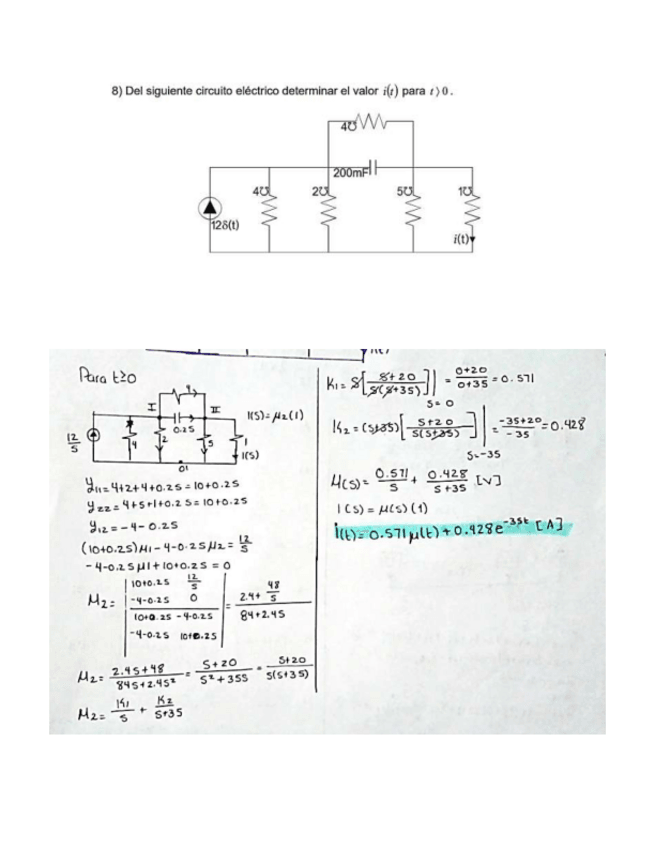 8) Del siguiente circuito eléctrico determinar el valor i(t) para t⟩0.
4℧
200mF
4℧ 2℧ 5℧ 1℧
12δ(t)
i(t)
Para t≥0
4
I II
0.2S
I(S)=μ2(1)
12/S
4 2 5 1
I(S)
01
y11=4+2+4+0.2S=10+0.2S
y22=4+5+1+0.2S=10+0.2S
y12=-4-0.2S
(10+0.2S)μ1-4-0.2Sμ2=12/S
-4-0.2Sμ1+10+0.2S=0
μ2= |10+0.2S 12/S; -4-0.2S 0| / |10+0.2S -4-0.2S; -4-0.2S 10+0.2S| = (2.4+48/S)/(84+2.4S)
μ2= (2.4S+48)/(84S+2.4S²) = (S+20)/(S²+35S) = (S+20)/(S(S+35))
μ2= K1/S + K2/(S+35)
K1= S[(S+20)/(S(S+35))]| S=0 = (0+20)/(0+35) = 0.571
K2=(S+35)[(S+20)/(S(S+35))]| S=-35 = (-35+20)/-35 = 0.428
μ(S)= 0.571/S + 0.428/(S+35) [V]
I(S)=μ(S)(1)
i(t)=0.571μ(t)+0.428e^-35t [A]